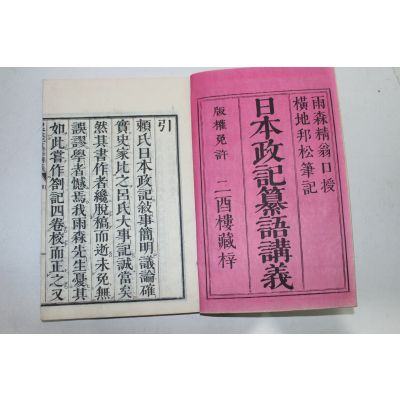 雨森精翁口授
橫地邦松筆記
日本政記纂語講義
版權免許
二酉樓藏梓
引
賴氏日本政記敍事簡明議論確
實史家比之呂氏大事記誠當矣
然其書作者纔脫稿而逝未免無
誤謬學者憾焉我雨森先生憂其
如此嘗作劄記四卷校而正之又